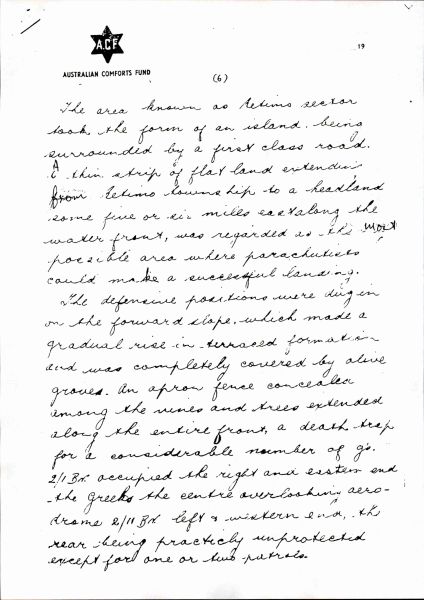 A.C.F
AUSTRALIAN COMFORTS FUND
19
(6)
The area known as Retimo sector
took the form of an island being
surrounded by a first class road.
A thin strip of flat land extending
from Retimo township to a headland
some five or six miles east along the
water front, was regarded as the most
possible area where parachutists
could make a successful landing.
The defensive positions were dug in
on the forward slope, which made a
gradual rise in terraced formation
and was completely covered by olive
groves. An apron fence concealed
among the vines and trees extended
along the entire front, a death trap
for a considerable number of g's.
2/1 Bn occupied the right and eastern end
the Greeks the centre overlooking aero-
drome 2/11 Bn left & western end, the
rear being practicly unprotected
except for one or two patrols.